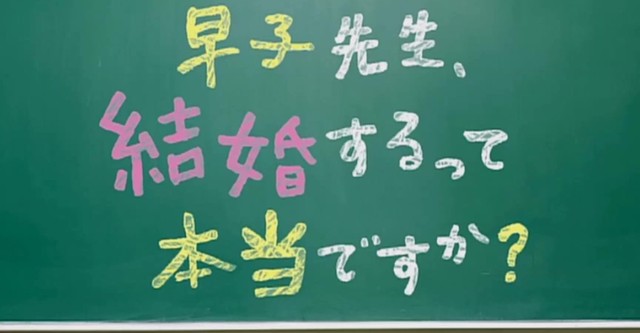 早子先生、
結婚するって
本当ですか?